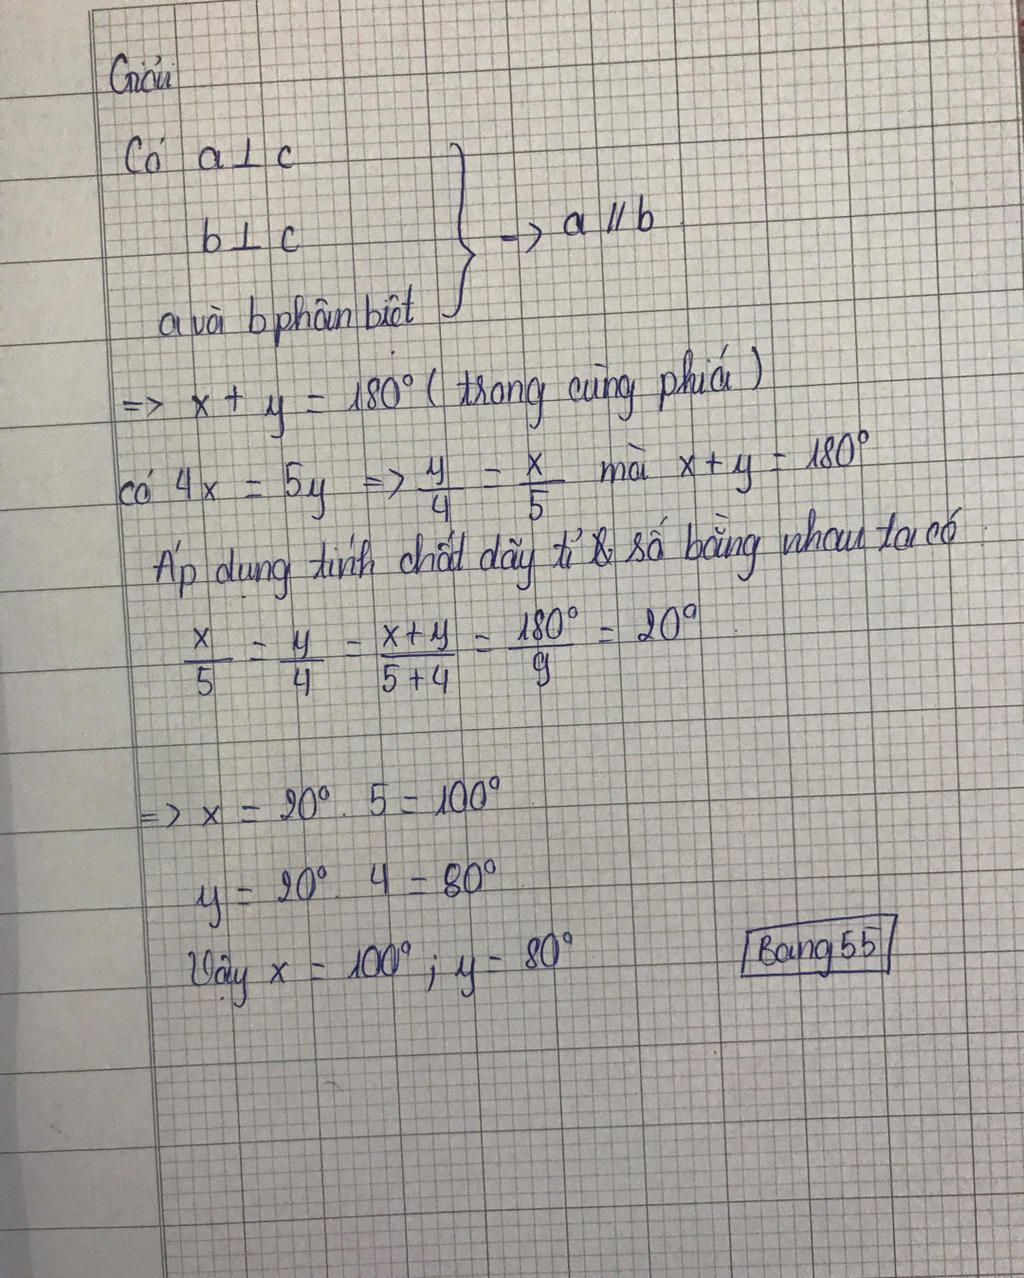 Giải
Có a ⊥ c
b ⊥ c
a và b phân biệt
} => a // b
=> x + y = 180° ( trong cùng phía )
có 4x = 5y => y/4 = x/5 mà x + y = 180°
Áp dụng tính chất dãy tỉ số bằng nhau ta có
x/5 = y/4 = x+y/5+4 = 180°/9 = 20°
=> x = 20° . 5 = 100°
y = 20° . 4 = 80°
Vậy x = 100° ; y = 80°
Bang55